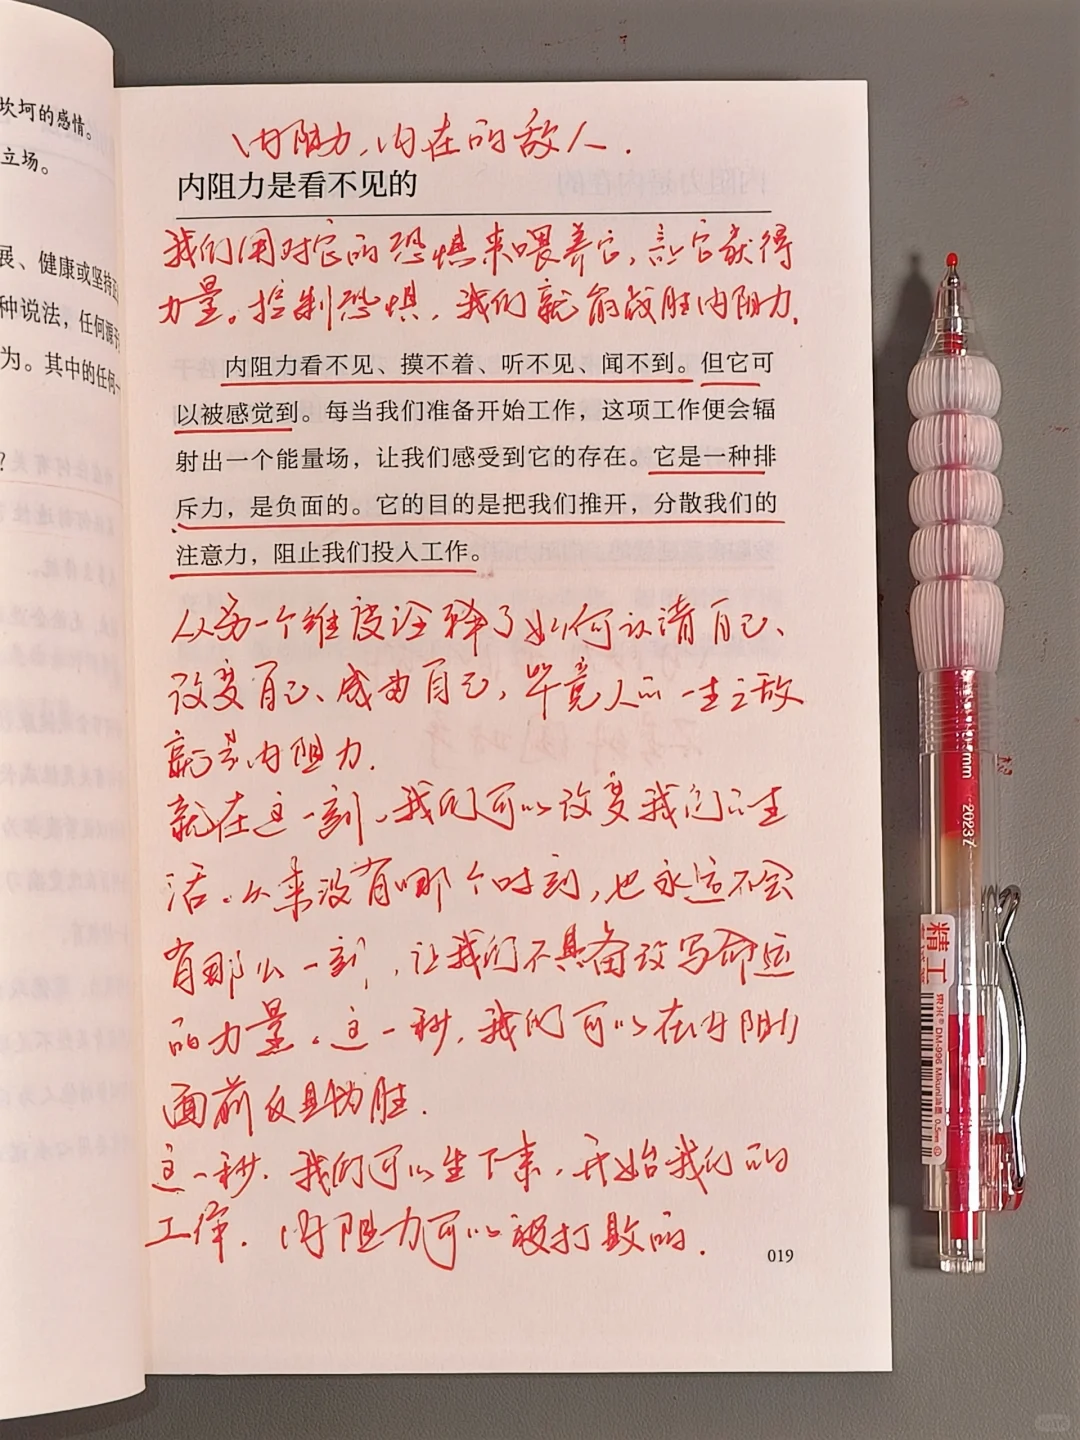 坎坷的感情。
立场。
展、健康或坚持
种说法，任何源
为。其中的任何一
?
内阻力，内在的敌人.
内阻力是看不见的
我们用对它的恐惧来喂养它，让它获得
力量。控制恐惧，我们就能战胜内阻力.
内阻力看不见、摸不着、听不见、闻不到。但它可
以被感觉到。每当我们准备开始工作，这项工作便会辐
射出一个能量场，让我们感受到它的存在。它是一种排
斥力，是负面的。它的目的是把我们推开，分散我们的
注意力，阻止我们投入工作。
从另一个维度诠释了如何认清自己、
改变自己、成由自己，毕竟人的一生之敌
就是内阻力.
就在这一刻，我们可以改变我们的生
活.从来没有哪个时刻，也永远不会
有那么一刻，让我们不具备改写命运
的力量。这一秒，我们可以在内阻力
面前反具为胜.
这一秒.我们可以坐下来，开始我们的
工作.内阻力可以被打败的.
019
0.5mm
2023
精工
DM-996 0.5mm